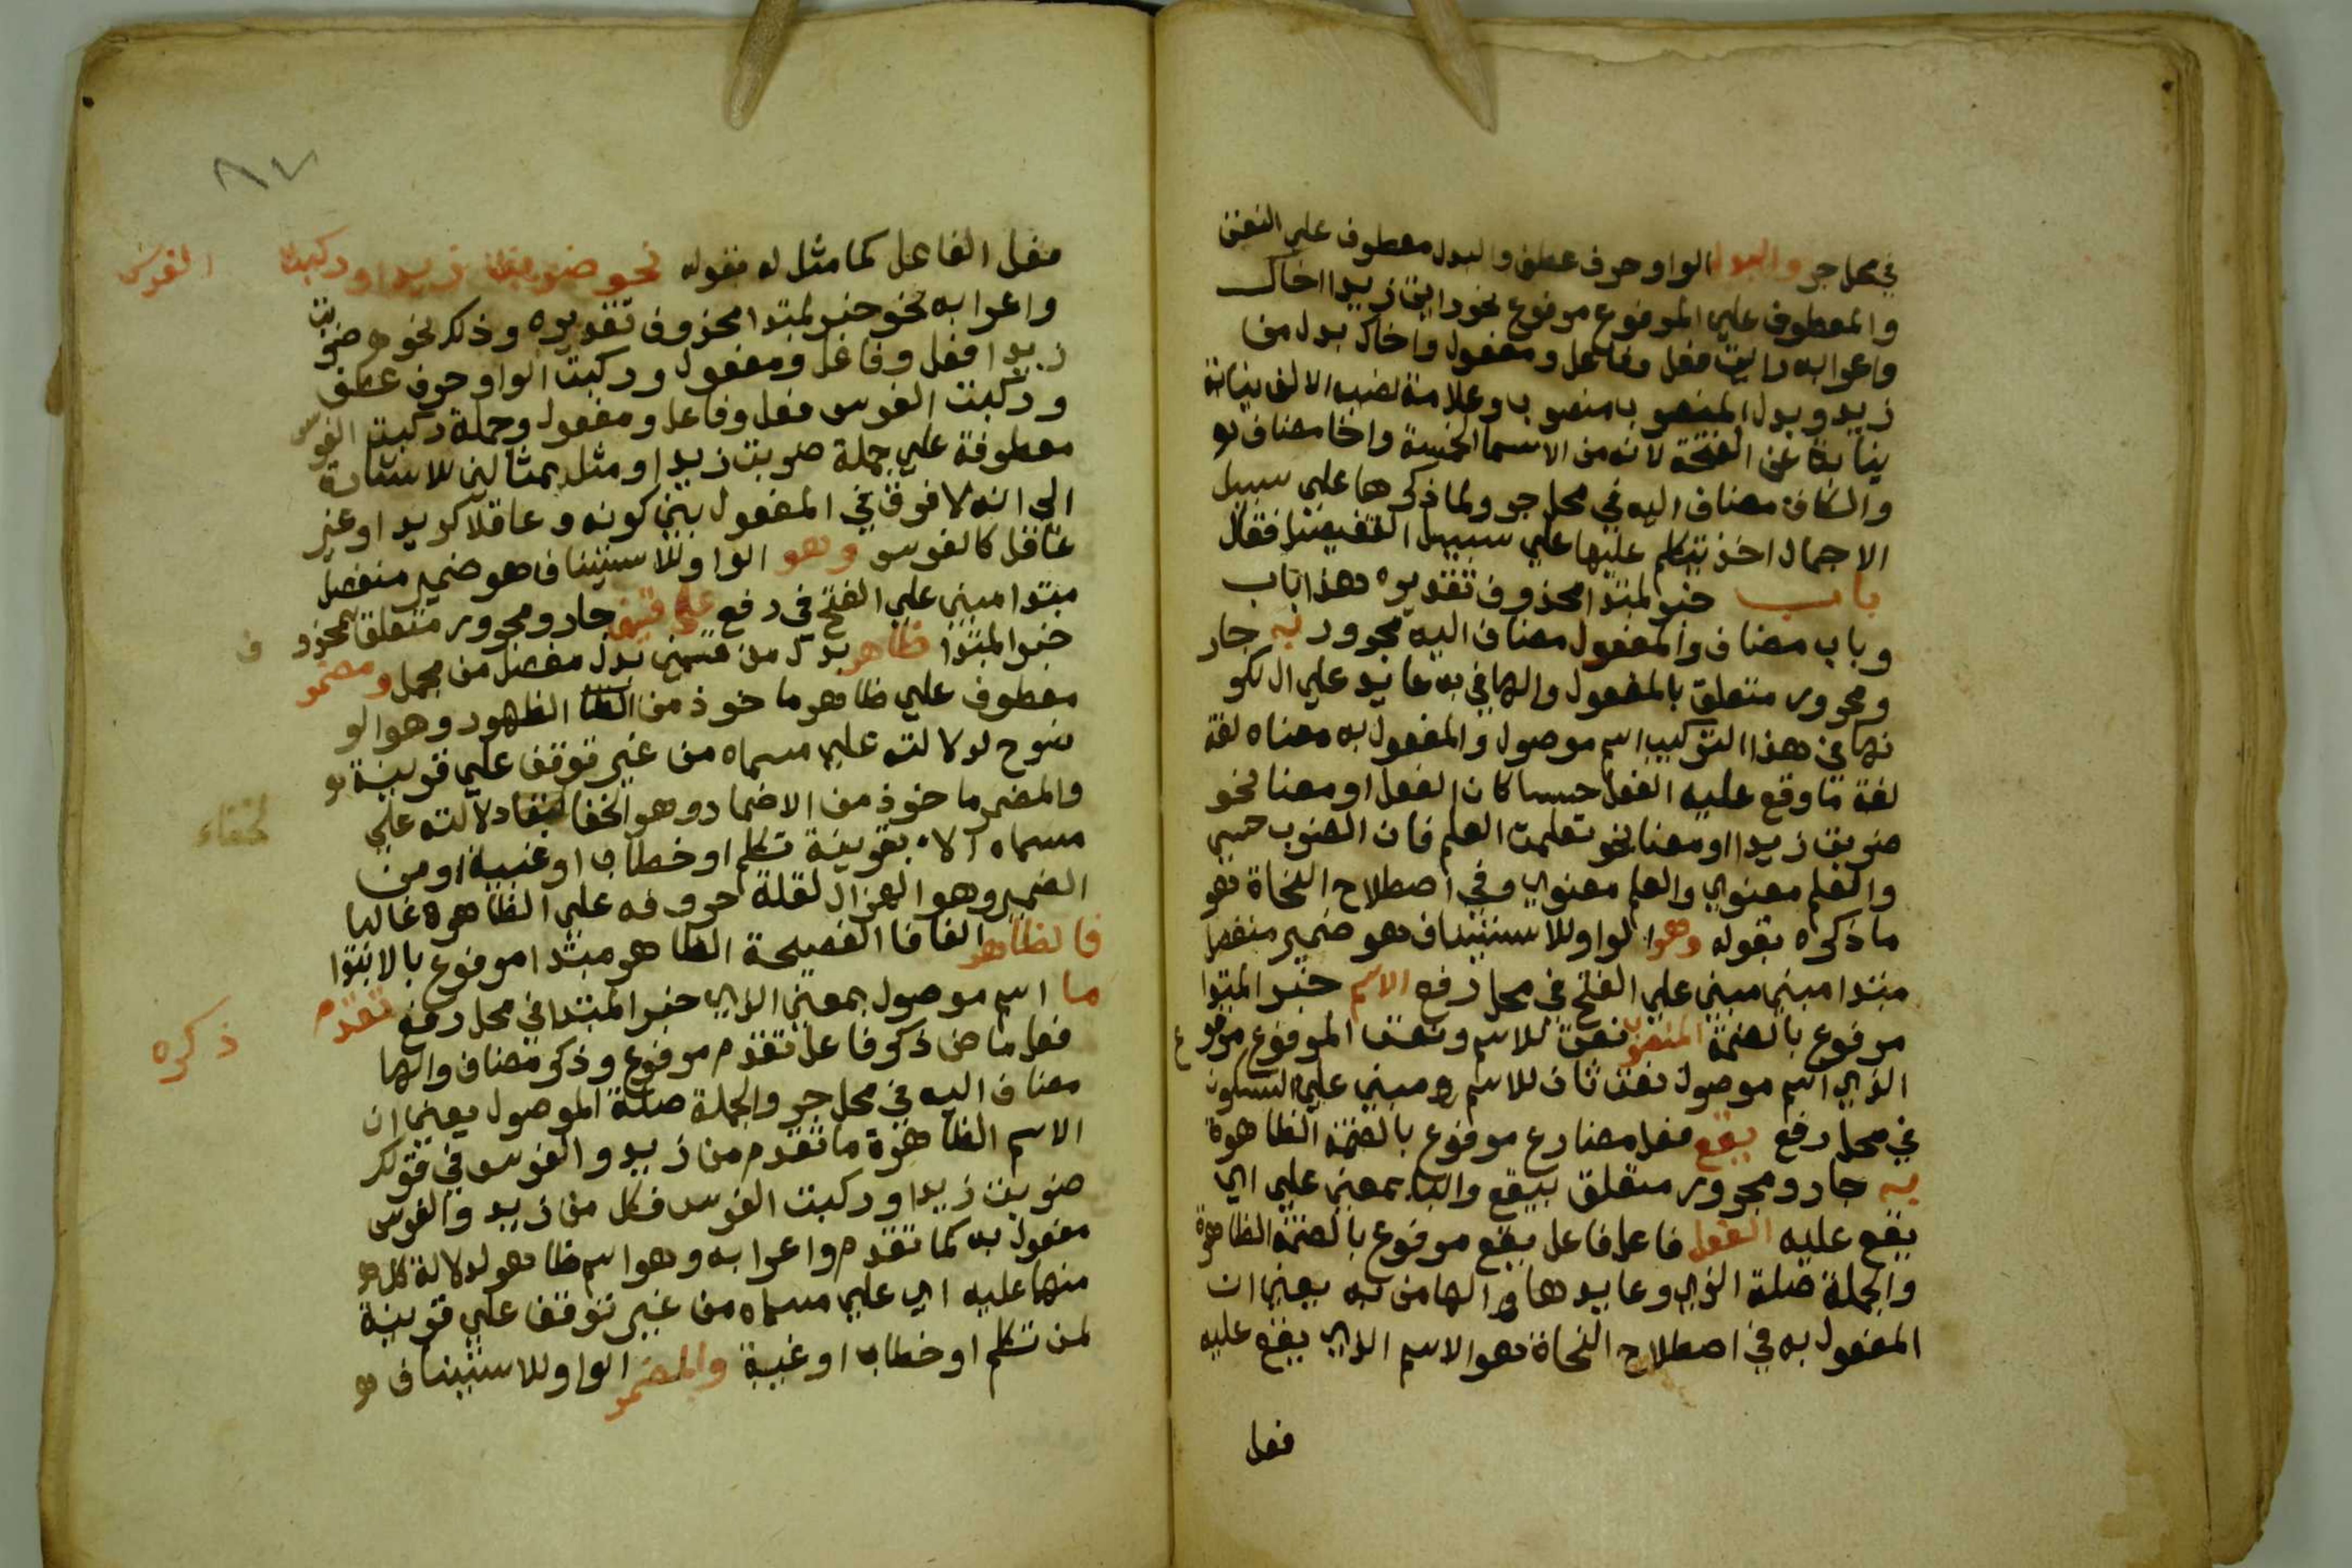 في محل جر والبدل الواو حرف عطف والبدل معطوف علي النعت
والمعطوف علي المرفوع مرفوع نحو رايت زيدا اخاك
واعرابه رايت فعل وفاعل ومفعول واخاك بدل من
زيد وبدل المنصوب منصوب وعلامة نصبه الالف نيابة
نيابة عن الفتحة لانه من الاسما الخمسة واخا مضاف
والكاف مضاف اليه في محل جر ولما ذكرها علي سبيل
الاجمال اخذ يتكلم عليها علي سبيل التفصيل فقال
باب خبر لمبتدا محذوف تقديره هذا باب
وباب مضاف والمفعول مضاف اليه مجرور به جار
ومجرور متعلق بالمفعول والها في به عايد علي ال لكو
نها في هذا التركيب اسم موصول والمفعول به معناه لغة
لغة ما وقع عليه الفعل حسا كان الفعل او معنا نحو
ضربت زيدا او معنا نحو تعلمت العلم فان الضرب حسي
والعلم معنوي والعلم معنوي وفي اصطلاح النحاة هو
ما ذكره بقوله وهو الواو للاستيناف هو ضمير منفصل
مبتدا مبني مبني علي الفتح في محل رفع الاسم خبر المبتدا
مرفوع بالضمة المنصوب نعت للاسم ونعت المرفوع مرفوع
الذي اسم موصول نعت ثان للاسم مبني علي السكون
في محل رفع يقع فعل مضارع مرفوع بالضمة الظاهرة
به جار ومجرور متعلق بيقع والبا بمعني علي اي
يقع عليه الفعل فاعل فاعل يقع مرفوع بالضمة الظاهرة
والجملة صلة الذي وعايدها الها من به يعني ان
المفعول به في اصطلاح النحاة هو الاسم الذي يقع عليه
فعل
٨٧
فعل الفاعل كما مثل له بقوله نحو ضربت زيدا وركبت الفرس
واعرابه نحو خبر لمبتدا محذوف تقديره وذلك نحو ضربت
زيدا فعل وفاعل ومفعول وركبت الواو حرف عطف
وركبت الفرس فعل وفاعل ومفعول وجملة ركبت الفرس
معطوفة علي جملة ضربت زيدا ومثل بمثالين للاشارة
الي انه لا فرق في المفعول بين كونه عاقلا كزيد او غير
عاقل كالفرس وهو الواو للاستيناف هو ضمير منفصل
مبتدا مبني علي الفتح في رفع علي قسمين جار ومجرور متعلق بمحذوف
خبر المبتدا ظاهر بدل من قسمين بدل مفصل من مجمل ومضمر
معطوف علي ظاهر ماخوذ من الظهور وهو الو
ضوح لدلالته علي مسماه من غير توقف علي قرينة
والمضمر ماخوذ من الاضمار وهو الخفا لخفاء دلالته علي
مسماه الا بقرينة تكلم او خطاب او غيبة او من
الضمير وهو الهزال لقلة حروفه علي الظاهر غالبا
فالظاهر الفا فا الفصيحة الظاهر مبتدا مرفوع بالابتدا
ما اسم موصول بمعني الذي خبر المبتدا في محل رفع تقدم ذكره
فعل ماض ذكر فاعل تقدم مرفوع وذكر مضاف والها
مضاف اليه في محل جر والجملة صلة الموصول يعني ان
الاسم الظاهرة ما تقدم من زيد والفرس في قولك
ضربت زيدا وركبت الفرس فكل من زيد والفرس
مفعول به كما تقدم واعرابه وهو اسم ظاهر لدلالة كل
منهما عليه اي علي مسماه من غير توقف علي قرينة
لمن تكلم او خطاب او غيبة والمضمر الواو للاستيناف